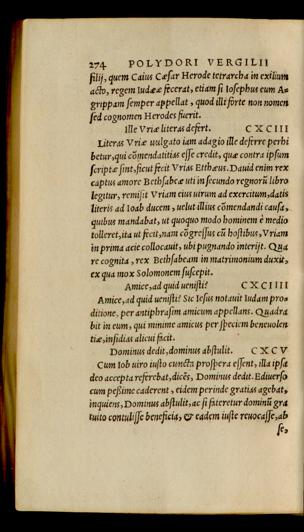 274 POLYDORI VERGILII
filij, quem Caius Cæsar Herode tetrarcha in exilium
acto, regem Iudææ fecerat, etiam si Iosephus eum A-
grippam semper appellat, quod illi forte non nomen
sed cognomen Herodes fuerit.
Ille Vriæ literas defert. CXCIII
Literas Vriæ uulgato iam adagio ille deferre perhi
betur, qui cōmendatitias esse credit, quæ contra ipsum
scriptæ sint, sicut fecit Vrias Etthæus. Dauid enim rex
captus amore Bethsabeæ uti in secundo regnorū libro
legitur, remisit Vriam eius uirum ad exercitum, datis
literis ad Ioab ducem, uelut illius cōmendandi causa,
quibus mandabat, ut quoquo modo hominem è medio
tolleret, ita ut fecit, nam cōgressus cū hostibus, Vriam
in prima acie collocauit, ubi pugnando interijt. Qua
re cognita, rex Bethsabeam in matrimonium duxit,
ex qua mox Solomonem suscepit.
Amice, ad quid uenisti? CXCIIII
Amice, ad quid uenisti? Sic Iesus notauit Iudam pro-
ditione, per antiphrasim amicum appellans. Quadra
bit in eum, qui minime amicus per speciem beneuolen
tiæ, insidias alicui facit.
Dominus dedit, dominus abstulit. CXCV
Cum Iob uiro iusto cuncta prospera essent, illa ipsa
deo accepta referebat, dicēs, Dominus dedit. Ediuerso
cum pessime caderent, eidem perinde gratias agebat,
inquiens, Dominus abstulit, ac si fateretur dominū gra
tuito contulisse beneficia, & eadem iuste reuocasse, ab
se,